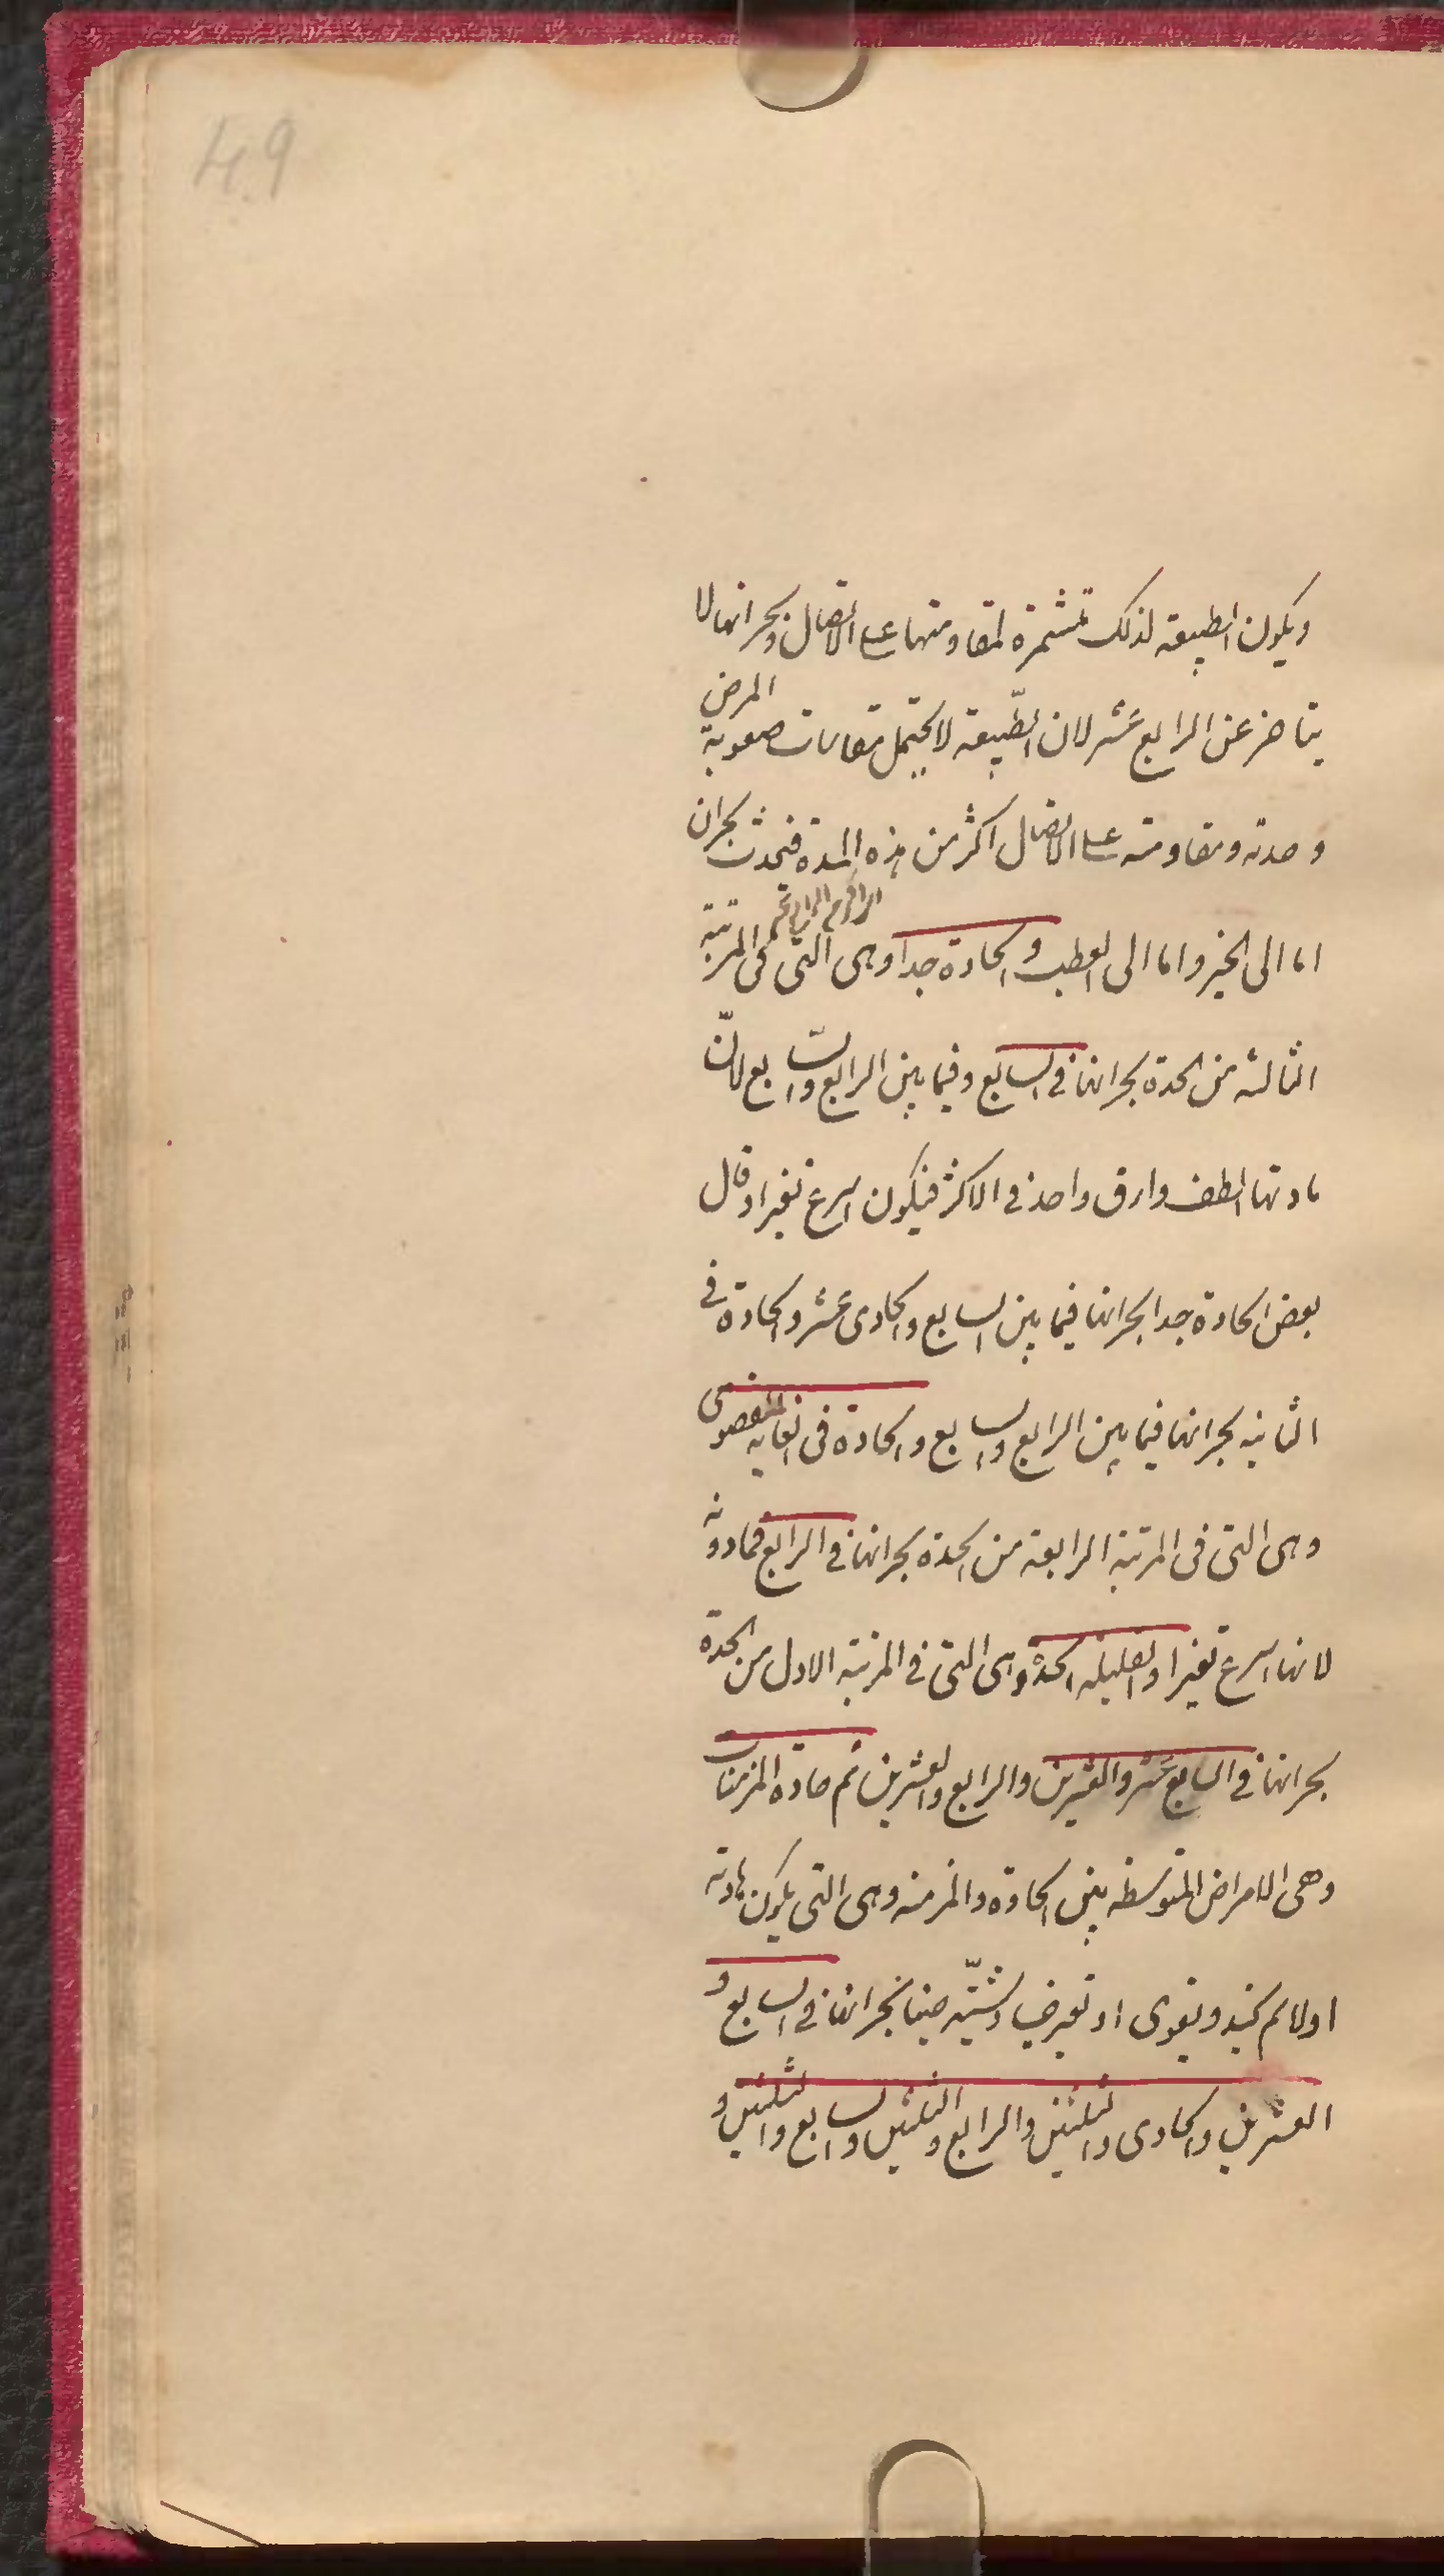 49
ويكون الطبيعة لذلك متشمرة لمقاومتها على الاتصال وبحرانها لا
يتاخر عن الرابع عشر لان الطّبيعة لا يحتمل مقاسات صعوبة المرض
وحدته ومقاومته على الاتصال اكثر من هذه المدة فيحدث بحران
اما الى الخير واما الى العطب والحادة جدا وهى التى فى المرتبة
الثالثه من الحدة بحرانها فى السابع وفيما بين الرابع والسّابع لانّ
مادتها الطف وارق واحد فى الاكثر فيكون اسرع تغيرا وقال
بعض الحادة جدا بحرانها فيما بين السابع والحادى عشر والحادة فى
الثانيه بحرانها فيما بين الرابع والسابع والحادة فى الغايه القصوى
وهى التى فى المرتبة الرابعة من الحدة بحرانها فى الرابع فمادونه
لانها اسرع تغيرا والقليله الحدة وهى التى فى المرتبة الاول من الحدة
بحرانها فى السابع عشر والعشرين والرابع والعشرين ثم حادة المزمنات
وهى الامراض المتوسطه بين الحادة والمزمنه وهى التى يكون مادته
اولا لم يحتد ويقوى او تعرض حينا بحرانها فى السابع و
العشرين والحادى والثلثين والرابع والثلثين والسابع والثلثين و